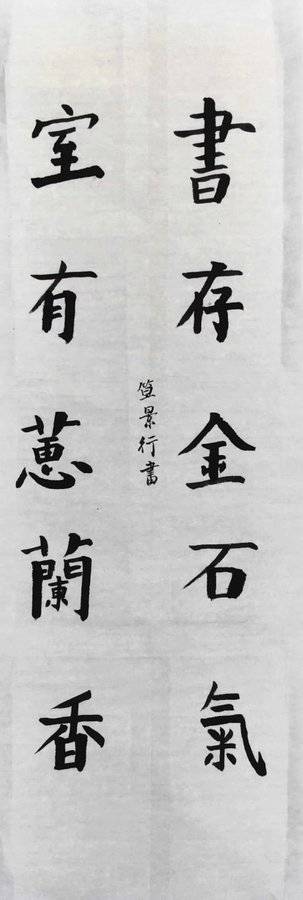 書存金石氣
室有蕙蘭香
笪景行書